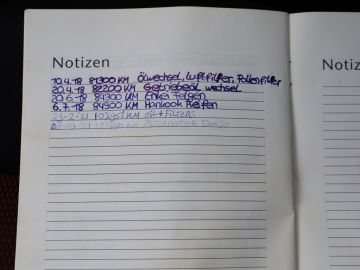 Notizen
10.4.18 81300 KM Ölwechsel, Luftfilter, Pollenfilter
20.4.18 82200 KM Getriebeöl wechsel
20.6.18 84300 KM Enkei Felgen
6.7.18 84900 KM Hankook Reifen
KM FILTERS
Notizen